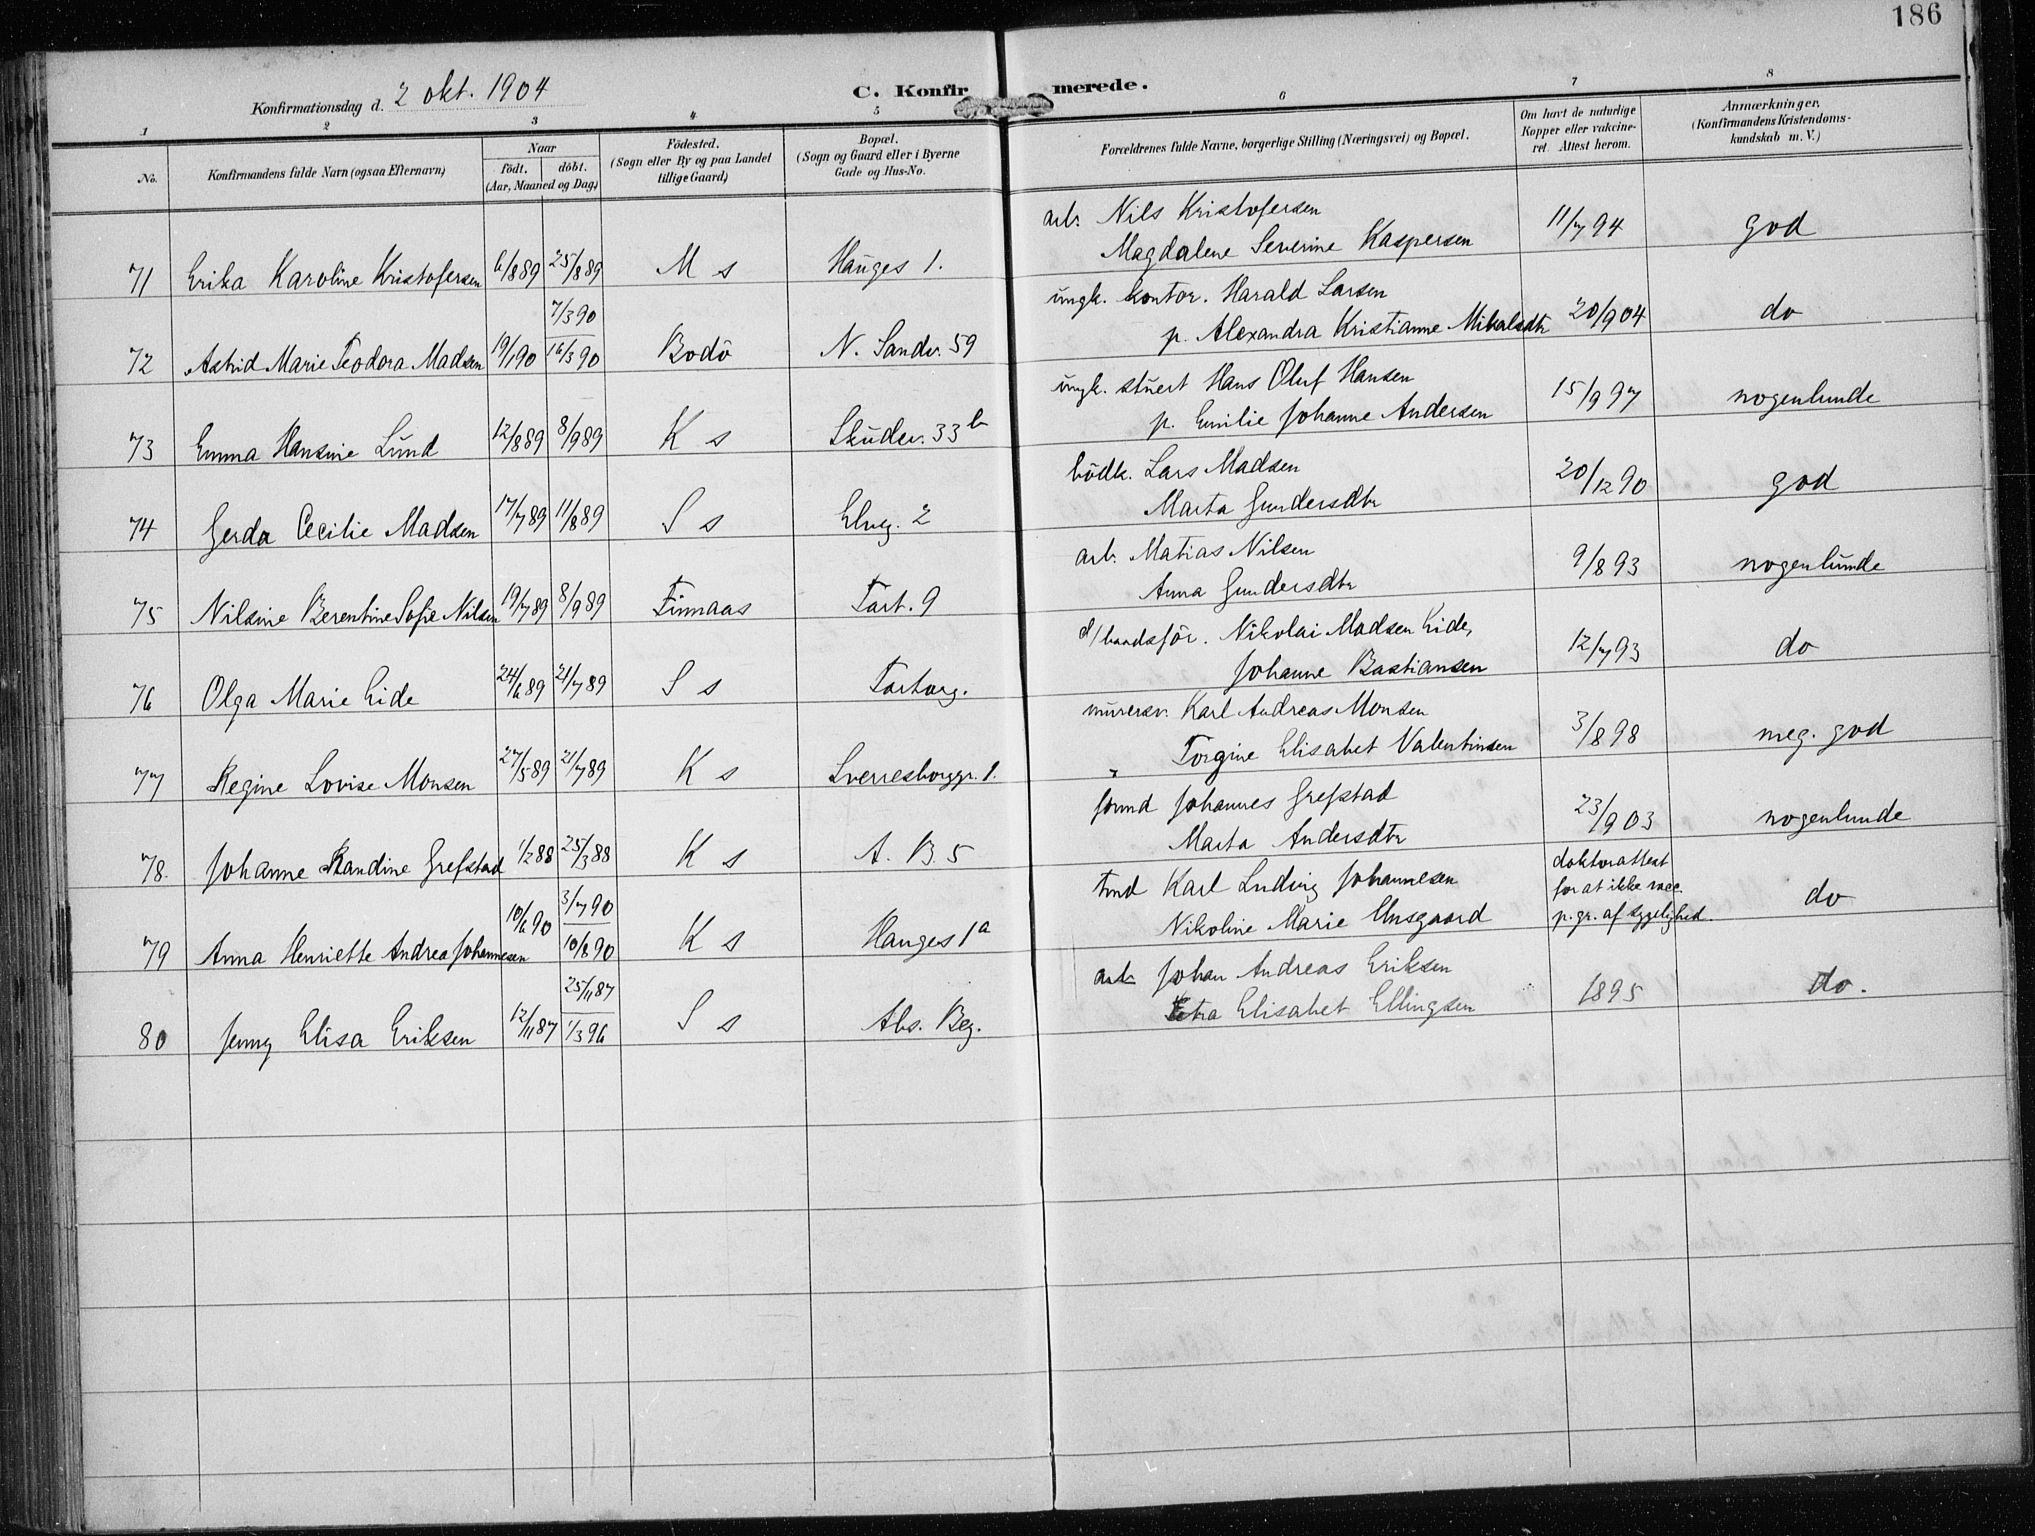 186
Konfirmationsdag d. 2 okt. 1904
C. Konfirmerede.
1 2 3 4 5 6 7 8
No.
Konfirmandens fulde Navn (ogsaa Efternavn)
Naar
født. døbt.
(Aar, Maaned og Dag)
Fødested.
(Sogn eller By og paa Landet
tillige Gaard)
Bopæl.
(Sogn og Gaard eller i Byerne
Gade og Hus-No.
Forældrenes fulde Navne, borgerlige Stilling (Næringsvei) og Bopæl.
Om havt de naturlige
Kopper eller vakcine-
ret. Attest herom.
Anmærkninger.
(Konfirmandens Kristendoms-
kundskab m. V.)
arb. Nils Kristofersen
71 Erika Karoline Kristofersen 6/8 89 25/8 89 M s Hauges 1. Magdalene Severine Kaspersen 11/7 94 god
7/3 90 ungk. kontor. Harald Larsen
72 Astrid Marie Teodora Madsen 19/1 90 16/3 90 Bodö N. Sandv. 59 p. Alexandra Kristianne Mikalsdtr 20/9 04 do
ungk. stuert Hans Oluf Hansen
73 Emma Hansine Lund 12/8 89 8/9 89 K s Skudev. 33 b p. Emilie Johanne Andersen 15/9 97 nogenlunde
bödk. Lars Madsen
74 Gerda Cecilie Madsen 17/7 89 11/8 89 S s Elveg. 2 Marta Gundersdtr 20/12 90 god
arb. Matias Nilsen
75 Nilsine Berentine Sofie Nilsen 19/7 89 8/9 89 Finnaas Tart. 9 Anna Gundersdtr 9/8 93 nogenlunde
d/ baadsför. Nikolai Madsen Eide,
76 Olga Marie Eide 24/6 89 21/7 89 S s Tartarg. Johanne Bastiansen 12/7 93 do
murersv. Karl Andreas Monsen
77 Regine Lovise Monsen 27/5 89 21/7 89 K s Sverresborggr. 1. Torgine Elisabet Valentinsen 3/8 98 meg. god
formd Johannes Grefstad
78. Johanne Randine Grefstad 1/2 88 25/3 88 K s A. B. 5 Marta Andersdtr 23/9 03 nogenlunde
3/7 90 tmd Karl Ludvig Johannesen doktorattest
for at ikke vacc.
79 Anna Henriette Andrea Johannesen 10/6 90 10/8 90 K s Hauges 1 a Nikoline Marie Unsgaard p. gr. af sygelighed. do
25/11 87 arb Johan Andreas Eriksen
80 Jenny Elisa Eriksen 12/11 87 1/3 96 S s Abs. Beg. Petra Elisabet Ellingsen 1895 do.